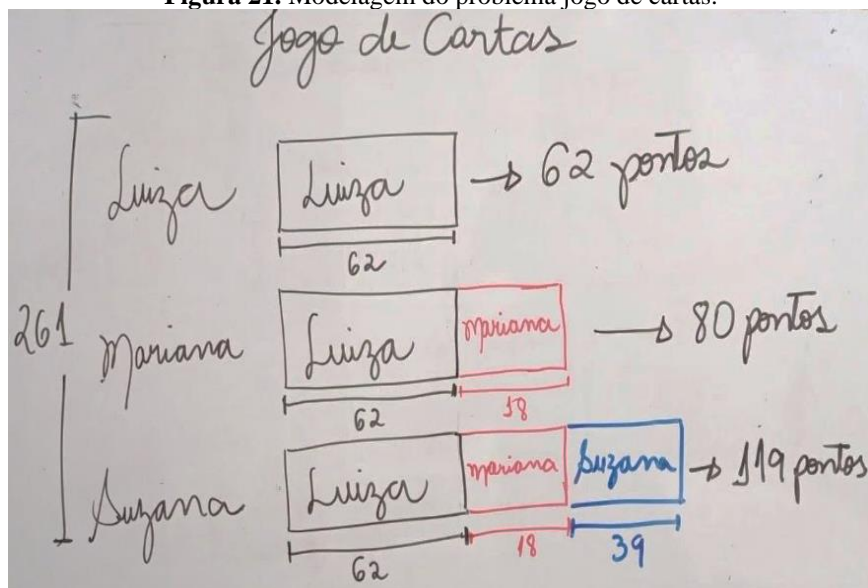 Figura 21. Modelagem do problema jogo de cartas.
Jogo de Cartas
Luiza Luiza → 62 pontos
62
261
Mariana Luiza Mariana → 80 pontos
62 18
Suzana Luiza Mariana Suzana → 119 pontos
62 18 39